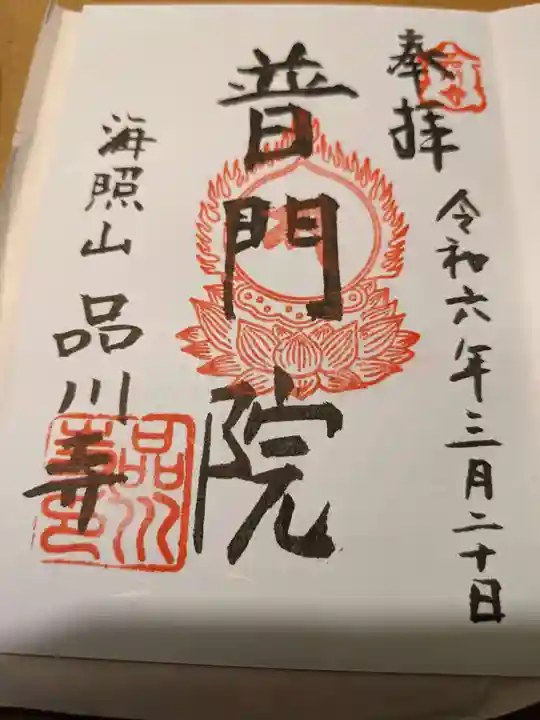 奉拝
令和六年三月二十日
普門院
海照山 品川寺